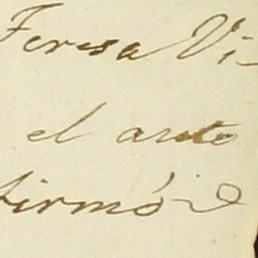 Teresa Vi-
el auto
firmó